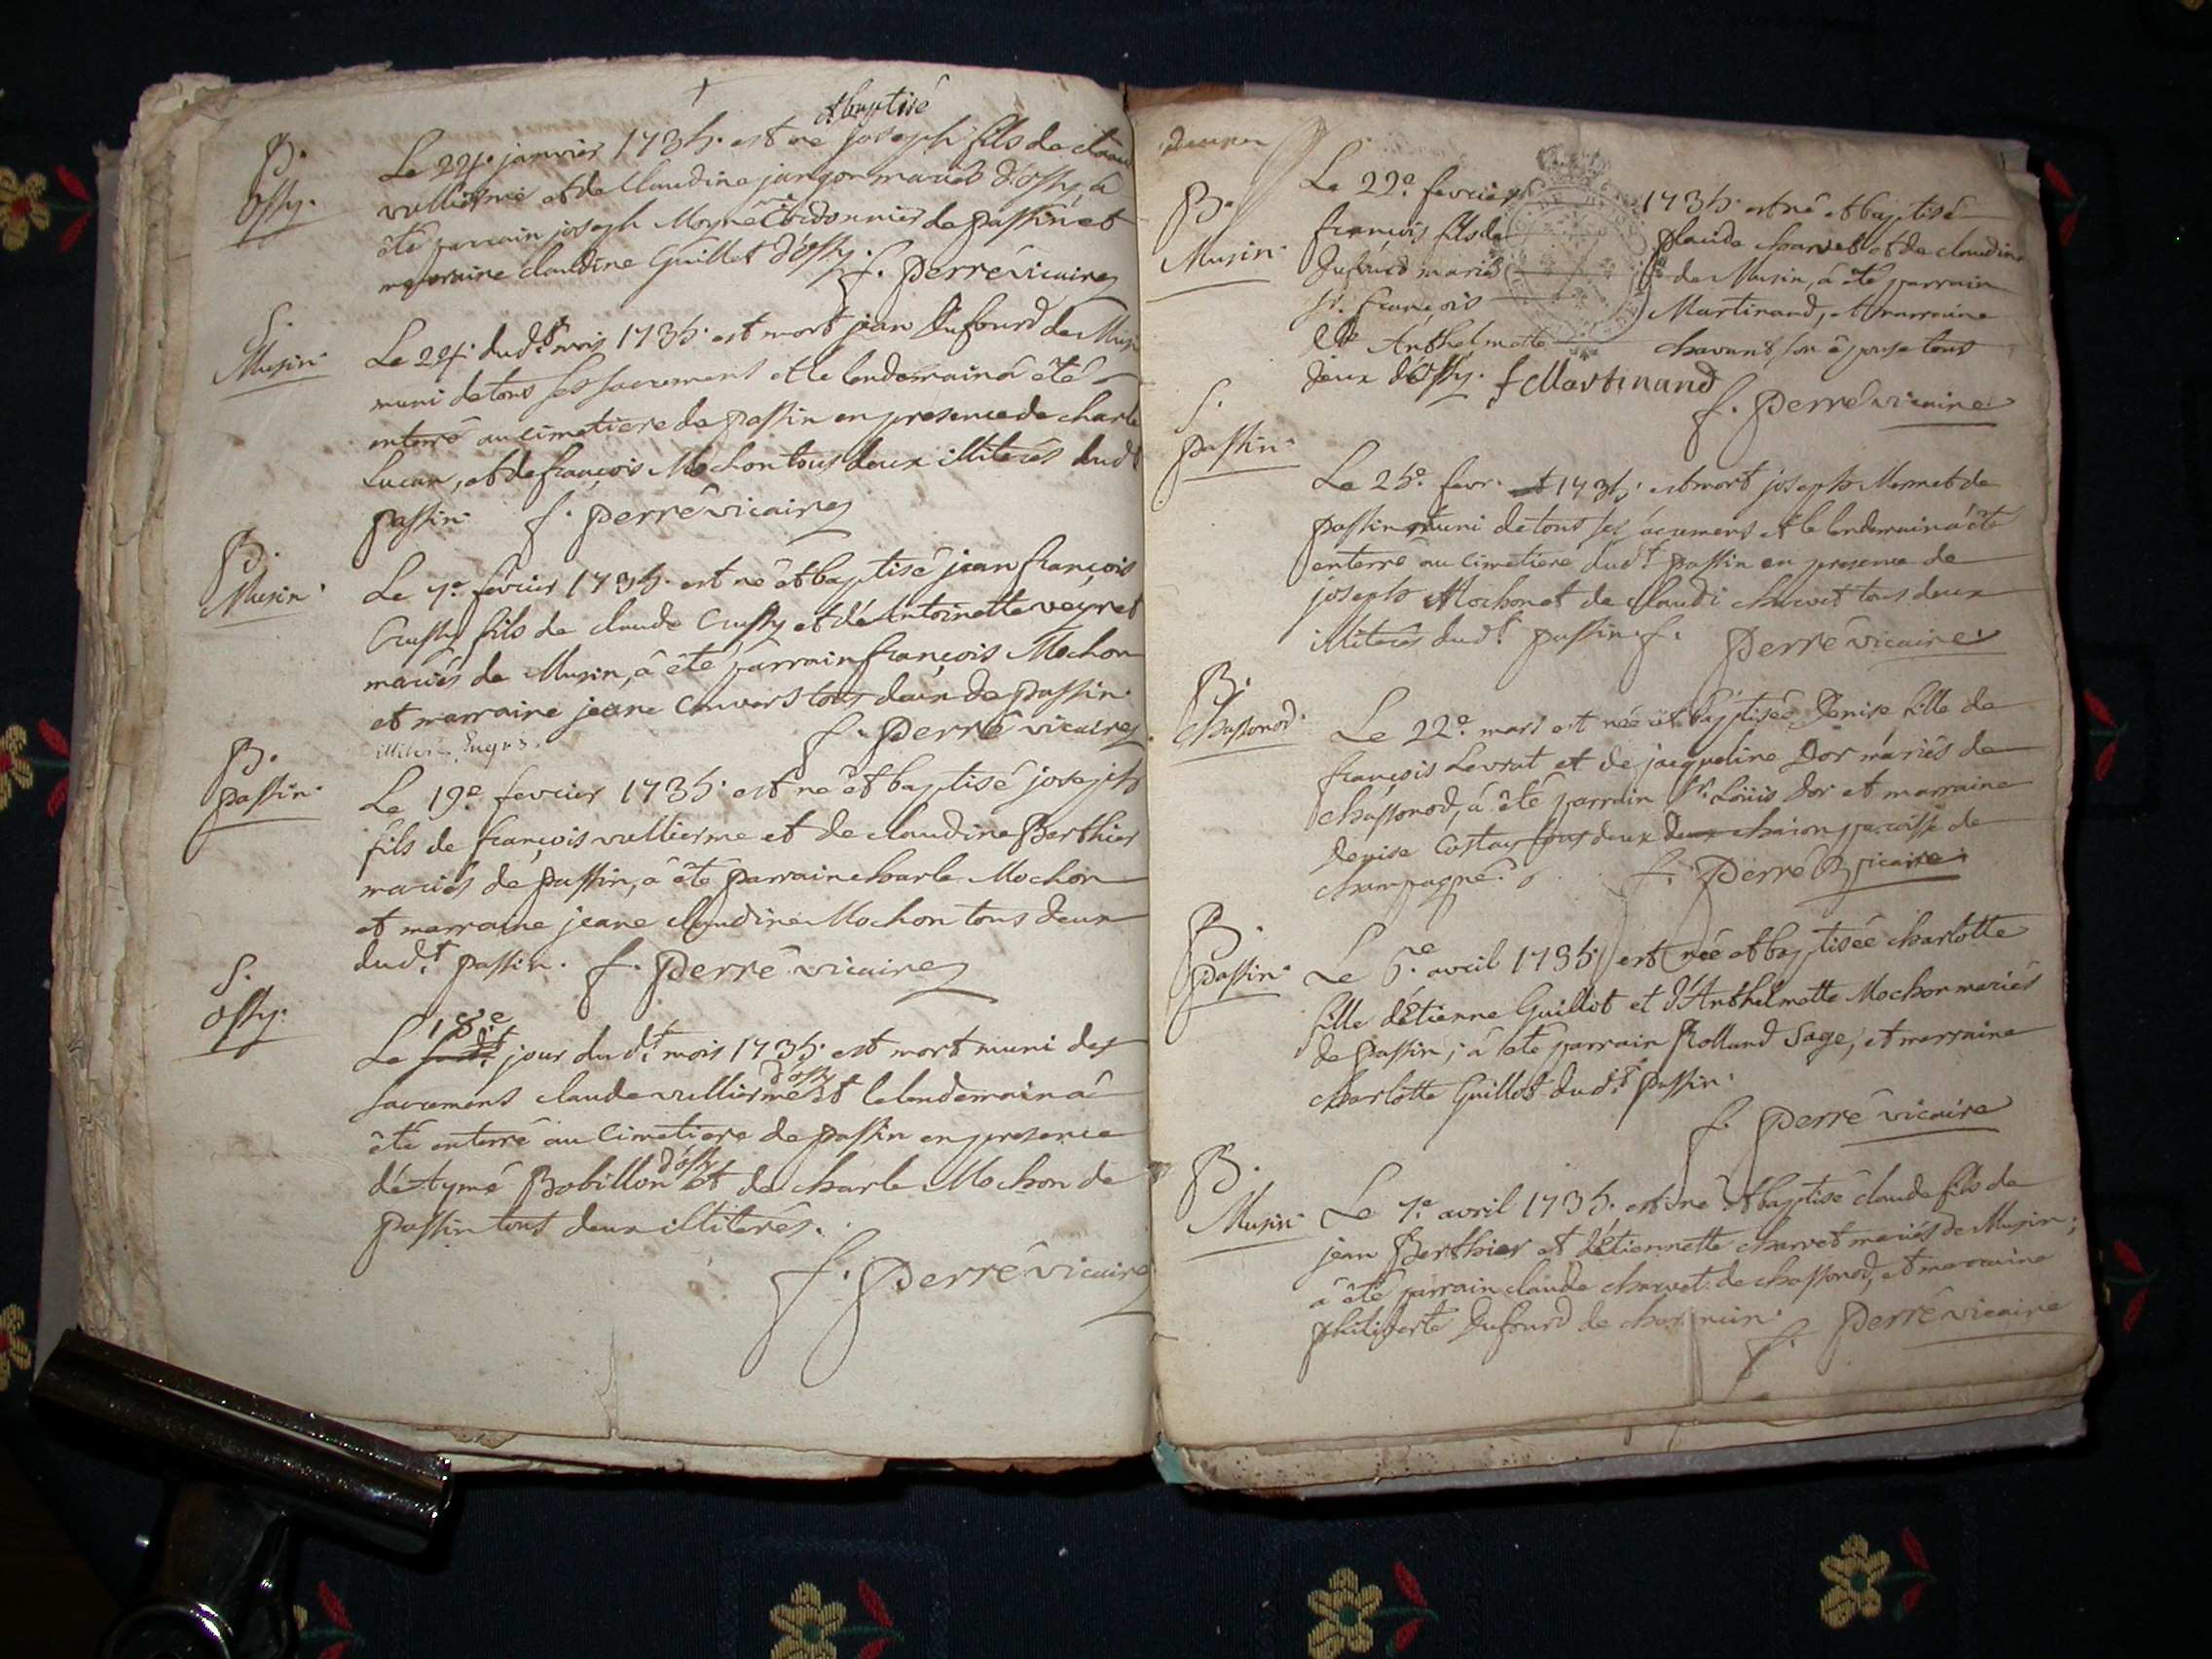 & baptisé
B. Le 24e janvier 1735. est né joseph fils de claude
Ossy. vullierme et de Claudine jangon mariés d'Ossy, à
été parrain joseph Moyne Cordonnier de passin et
marraine claudine Guillet d'ossy.
f. perré vicaire
S. Le 24e dudt mois 1735. est mort jean Dufourd de Musin
Musin. muni de tous ses sacremens et le lendemain à été
enterré au cimetiere de passin en presence de charle
Lucan, et de françois Mochon tous deux illiterés dudt
passin. f. perré vicaire
B. Le 7e fevrier 1735. est né et baptisé jean françois
Musin. Cussy fils de claude Cussy et d'Antoinette veyret
mariés de Musin, à été parrain françois Mochon
et marraine jeane Convers tous deux de passin.
illiterés
f. perré vicaire
B. Le 19e fevrier 1735. est né et baptisé joseph
passin. fils de françois vullierme et de claudine Berthier
mariés de passin, à été parrain charle Mochon
et marraine jeane claudine Mochon tous deux
dudt passin. f. perré vicaire
S. 18e
Ossy. Le jour dudt mois 1735. est mort muni des
sacremens claude vullierme d'ossy et le lendemain à
été enterré au cimetiere de passin en presence
d'Aymé Bobillon d'ossy et de charle Mochon de
passin tous deux illiterés.
f. perré vicaire
B. Le 22e fevrier 1735. est né et baptisé
Musin. françois fils de claude charvet et de claudine
Dufourd mariés de Musin, à été parrain
sr. françois Martinand, et marraine
dlle Anthelmette chavant son épouse tous
deux d'Ossy. f Martinand
f. perré vicaire
S.
passin. Le 25e fevr. 1735. est mort joseph Mermet de
passin muni de tous ses sacremens et le lendemain à été
enterré au cimetiere dudt passin en presence de
joseph Mochon et de claude charvet tous deux
illiterés dudt passin. f. perré vicaire
B.
chassonod. Le 22e mars est née et baptisée Denise fille de
françois Levrat et de jacqueline Dor mariés de
chassonod, à été parrain sr. Loüis Dor et marraine
Denise Costaz tous deux de charon paroisse de
champagne. f. perré vicaire
B. Le 6e avril 1735. est née et baptisée charlotte
passin. fille d'Etienne Guillot et d'Anthelmette Mochon mariés
de passin; à été parrain Rolland Sage, et marraine
charlotte Guillot dudt passin.
f. perré vicaire
B. Le 7e avril 1735. est né et baptisé claude fils de
Musin. jean Berthier et d'Etiennette charvet mariés de Musin;
à été parrain claude charvet de chassonod, et marraine
philiberte Dufourd de
f. perré vicaire